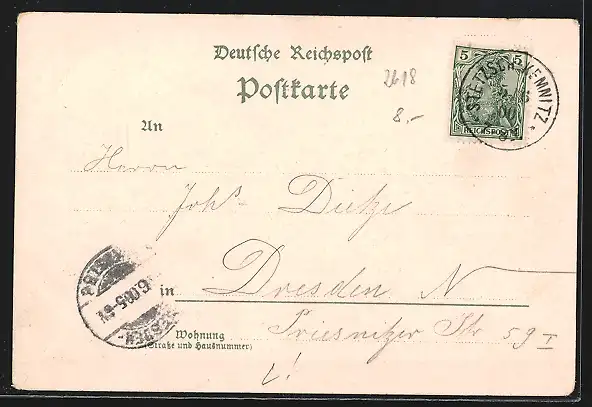 Deutsche Reichspost
Postkarte
2618
8.-
5 5
REICHSPOST
KEMNITZ
An
Herrn
Joh⁵ Dietze
in Dresden N
Wohnung
(Straße und Hausnummer)
Priesnitzer Str 59 I